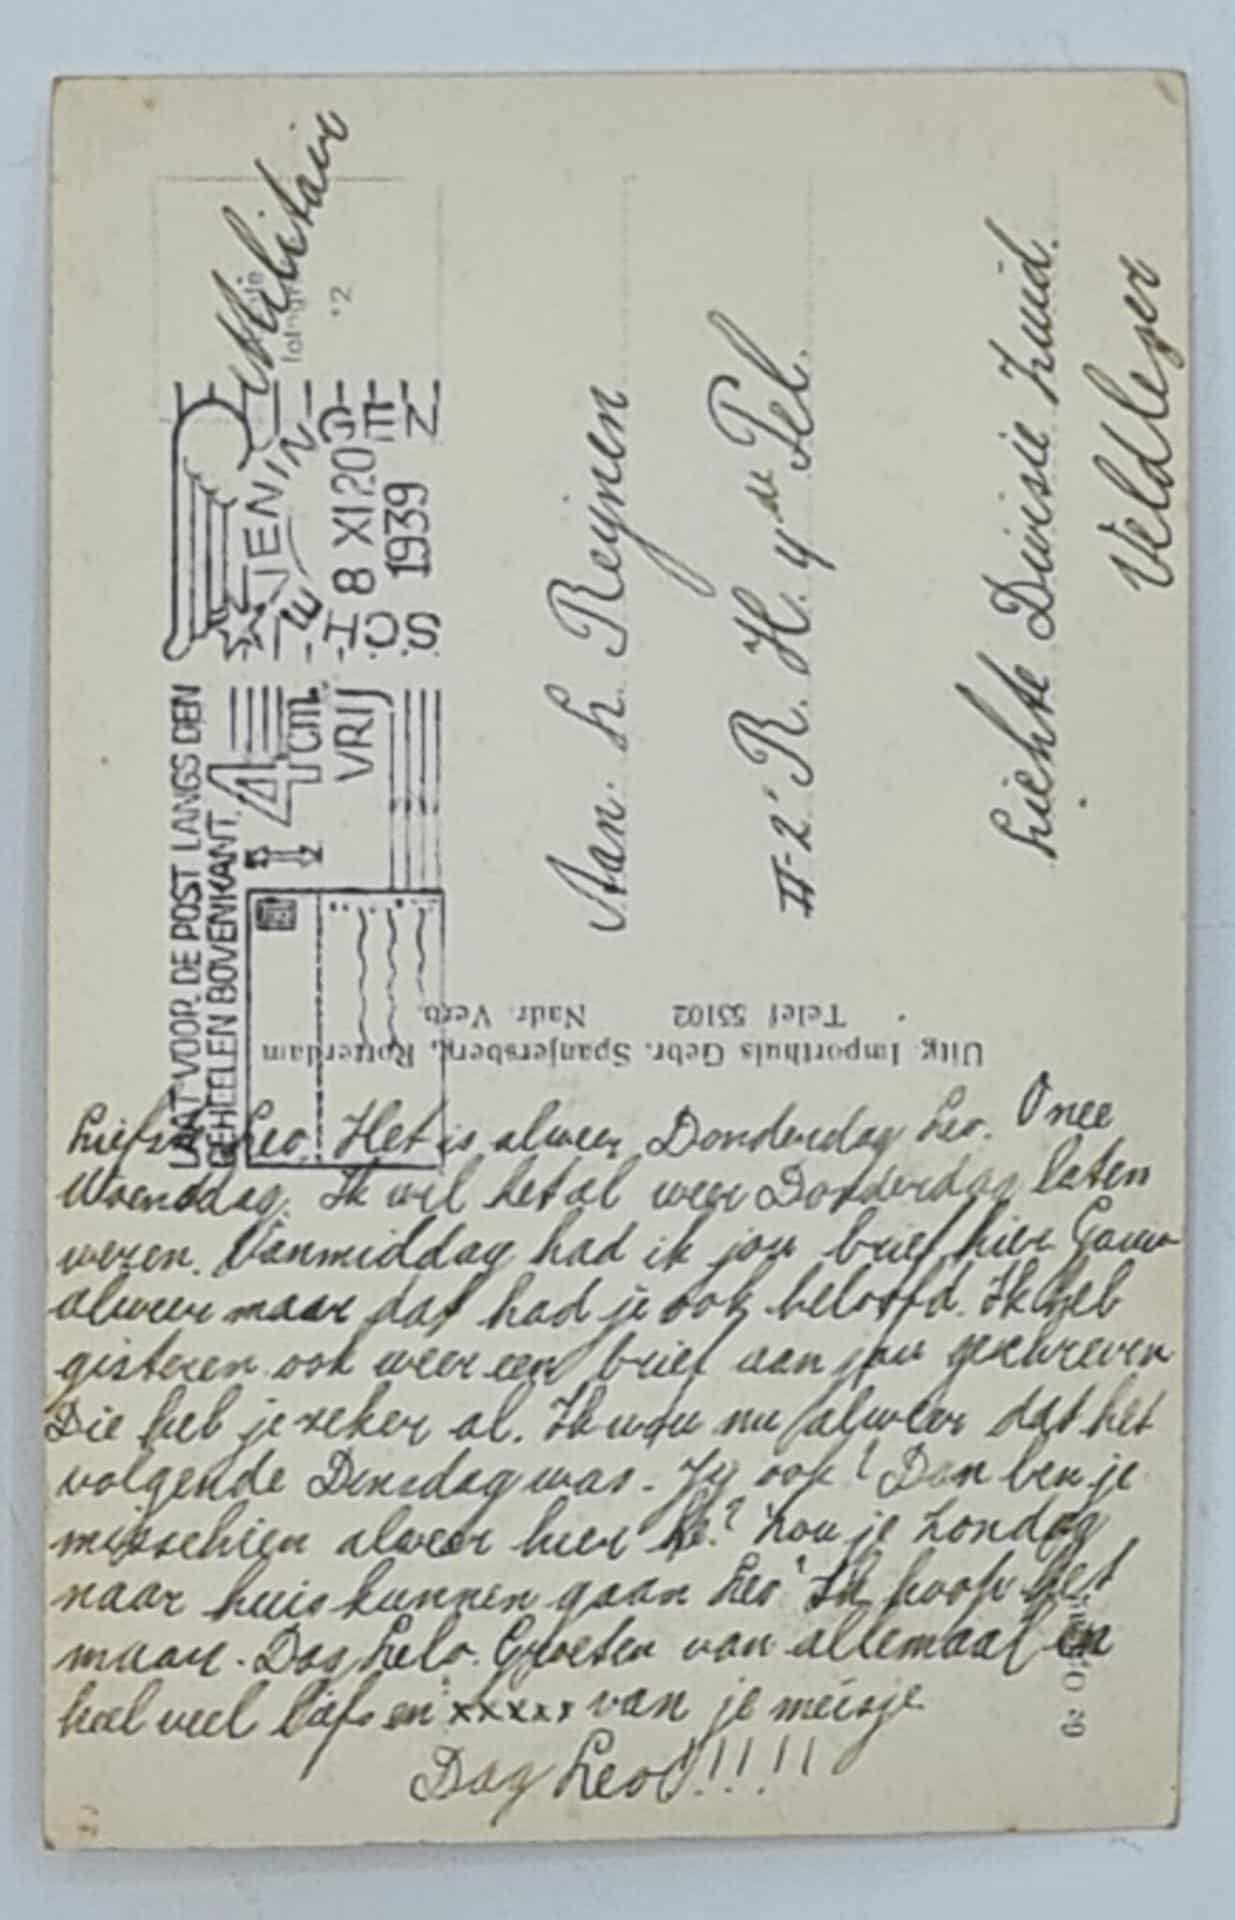 Militair
's-GRAVENHAGE
8 XI 20
1939
LAAT VOOR DE POST LANGS DEN
GEHEELEN BOVENKANT
4 cm.
VRIJ
Aan: L. Reijnen
II-2- R. H. 4e Pel.
Lichte Divisie Zuid.
Veldleger
Uitg. Importhuis Gebr. Spanjersberg, Rotterdam
Telef 55102 Nadr. Verb.
Liefste Leo. Het is alweer Donderdag Leo. O nee
Woensdag. Ik wil het al weer Donderdag laten
wezen. Vanmiddag had ik jou brief hier. Gauw
alweer maar dat had je ook beloofd. Ik heb
gisteren ook weer een brief aan jou geschreven
Die heb je zeker al. Ik wou nu alweer dat het
volgende Dinsdag was. Jy ook? Dan ben je
misschien alweer hier hè? Zou je Zondag
naar huis kunnen gaan Leo? Ik hoop het
maar. Dag Leo. Groeten van allemaal en
heel veel liefs en xxxxx van je meisje
Dag Leo!!!!!